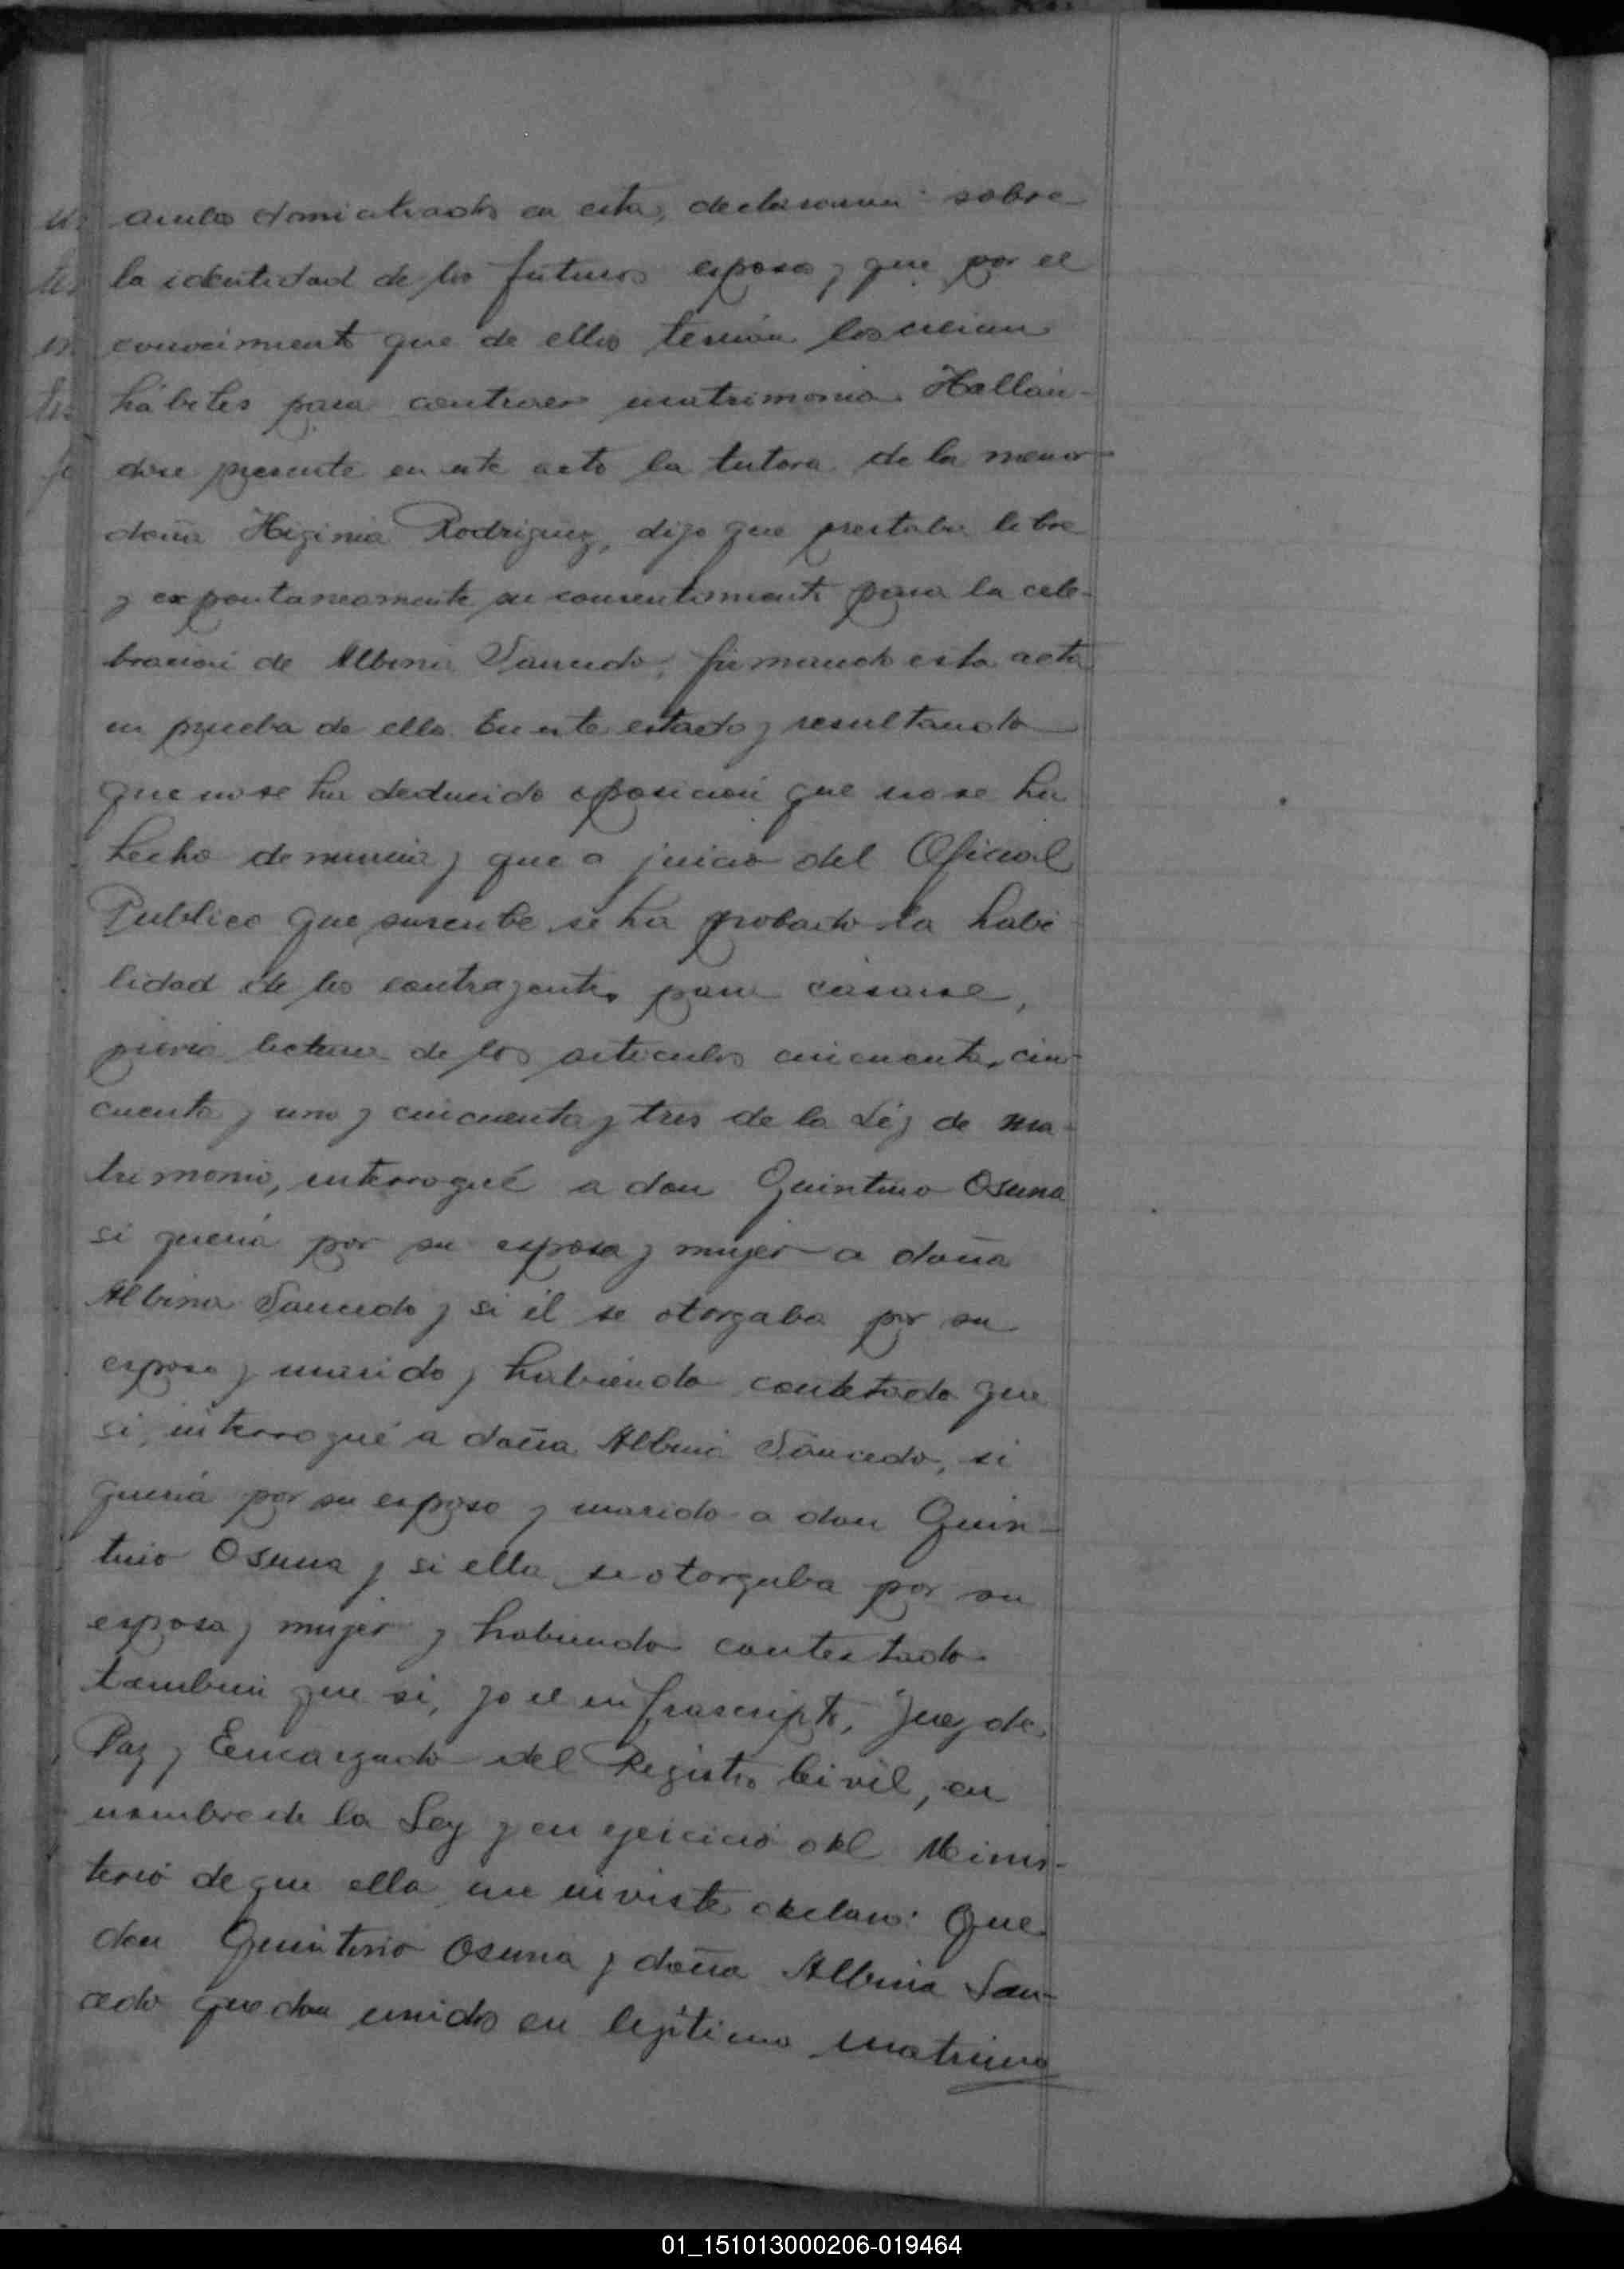 ambos domiciliados en esta, declararon sobre
la identidad de los futuros esposos y que por el
conocimiento que de ellos tenían los creían
hábiles para contraer matrimonio. Hallán-
dose presente en este acto la tutora de la menor
doña Higinia Rodriguez, dijo que prestaba libre
y expontaneamente su consentimiento para la cele-
bración de Albina Saucedo, firmando esta acta
en prueba de ello. En este estado y resultando
que no se ha deducido oposición que no se ha
hecho denuncia y que a juicio del Oficial
Publico que suscribe se ha probado la habi
lidad de los contrayentes para casarse,
previa lectura de los articulos cincuenta, cin-
cuenta y uno y cincuenta y tres de la Ley de ma-
trimonio, interrogué a don Quintino Osuna
si quería por su esposa y mujer a doña
Albina Saucedo y si él se otorgaba por su
esposo y marido y habiendo contestado que
si, interrogué a doña Albina Saucedo, si
quería por su esposo y marido a don Quin-
tino Osuna y si ella se otorgaba por su
esposa y mujer y habiendo contestado
tambien que si, yo el infrascripto, Juez de
Paz y Encargado del Registro Civil, en
nombre de la Ley y en ejercicio del Minis-
terio de que ella me inviste declaro: Que
don Quintino Osuna y doña Albina Sau-
cedo quedan unidos en legítimo matrimo
01_151013000206-019464